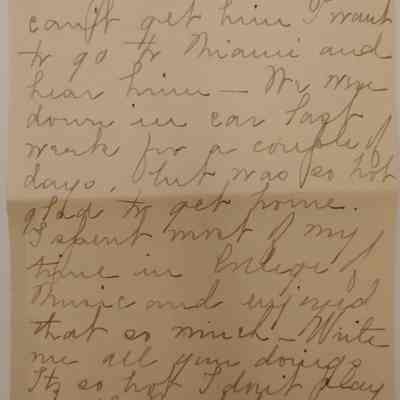 can't get him I want
to go to Miami and
hear him — We were
down in car last
week for a couple of
days, but was so hot
glad to get home.
I spent most of my
time in College of
Music and enjoyed
that so much — Write
me all your doings
Its so hot I don't play